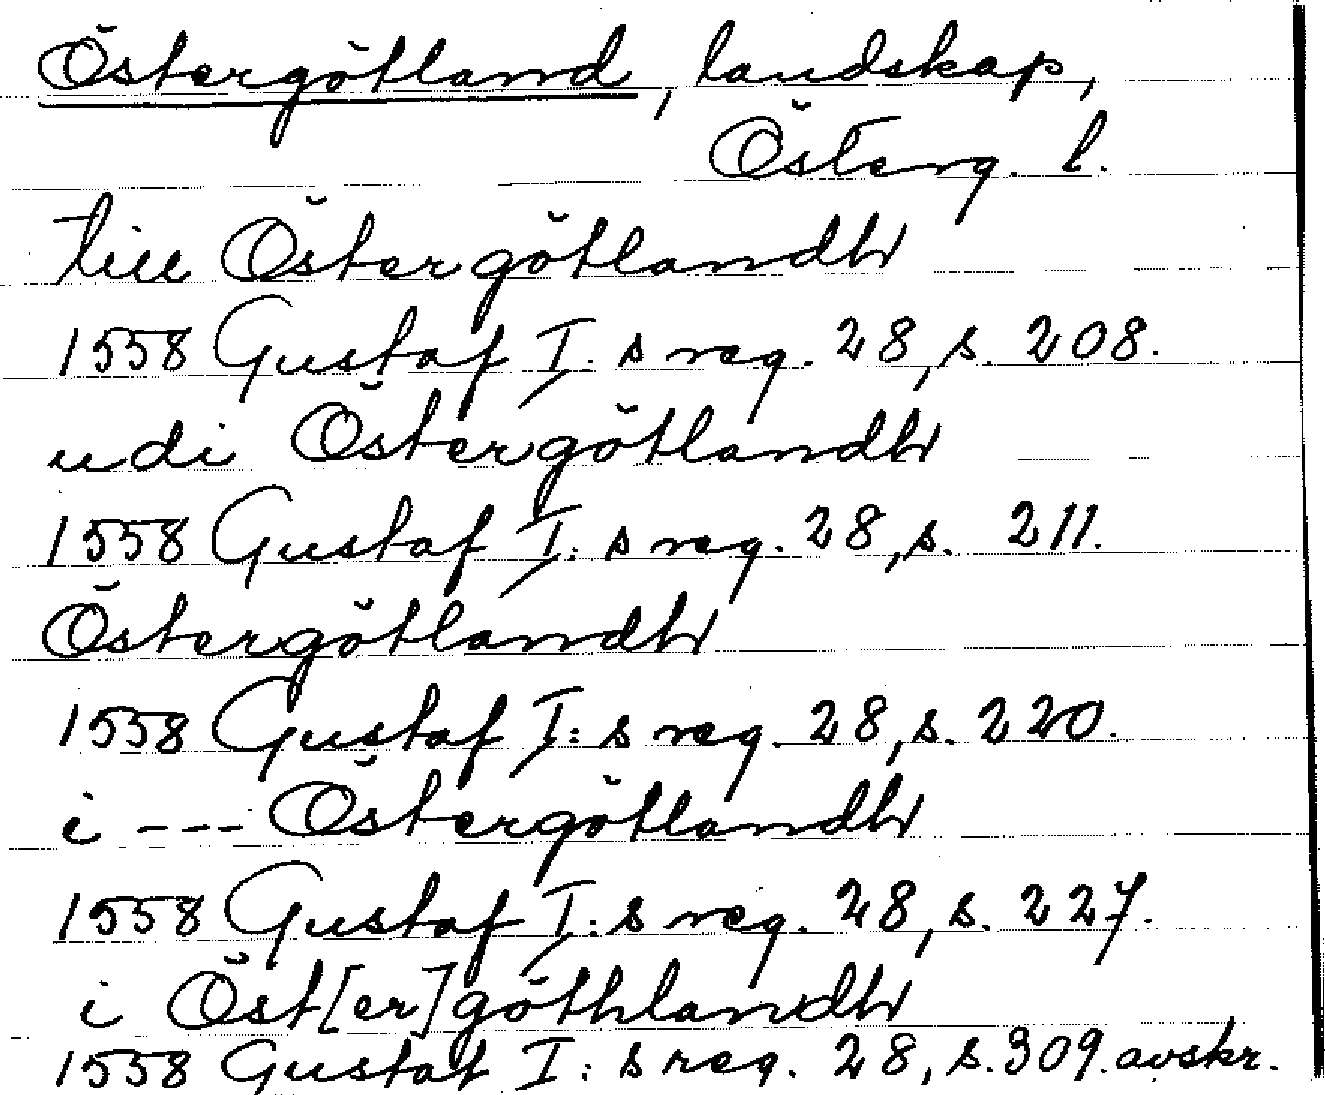 Östergötland, landskap,
Österg. l.
till Östergötlandh
1558 Gustaf I:s reg. 28, s. 208.
udi Östergötlandh
1558 Gustaf I:s reg. 28, s. 211.
Östergötlandh
1558 Gustaf I:s reg. 28, s. 220.
i --- Östergötlandh
1558 Gustaf I:s reg. 28, s. 227.
i Öst[er]göthlandh
1558 Gustaf I:s reg. 28, s. 309. avskr.